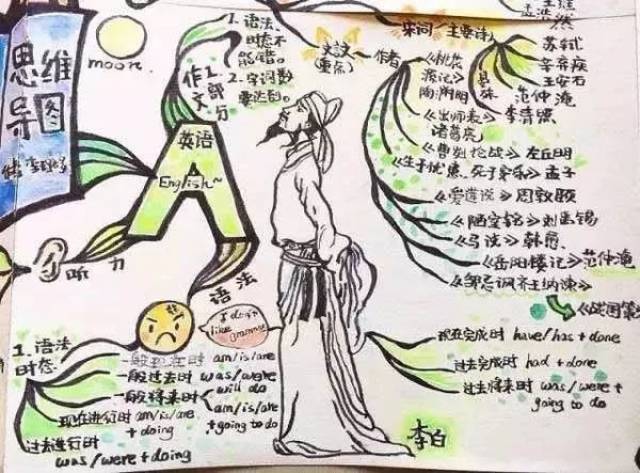 思维
导图
moon.
1. 语法、
时态不
能错。
2. 字词数
要达到。
作文
部分
英语
English~
听力
语法
I don't
like Grammar
1. 语法
时态
一般现在时 am/is/are
一般过去时 was/were
一般将来时 will do
am/is/are
+going to do
现在进行时 am/is/are
+ doing
过去进行时
was/were + doing
现在完成时 have/has + done
过去完成时 had + done
过去将来时 was/were +
going to do
李白
文言文
(重点)
作者
宋词/主要诗人
苏轼
辛弃疾
王安石
范仲淹
李清照
《桃花
源记》
陶渊明
《出师表》
诸葛亮
《曹刿论战》左丘明
《生于忧患，死于安乐》孟子
《爱莲说》周敦颐
《陋室铭》刘禹锡
《马说》韩愈
《岳阳楼记》范仲淹
《邹忌讽齐王纳谏》
《战国策》